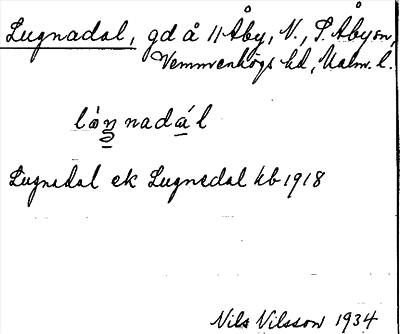 Lugnadal, gd å 11 Åby, N., S. Åby sn,
Vemmenhögs hd, Malm. l.
lòŋnadál
Lugnadal ek Lugnedal kb 1918
Nils Nilsson 1934